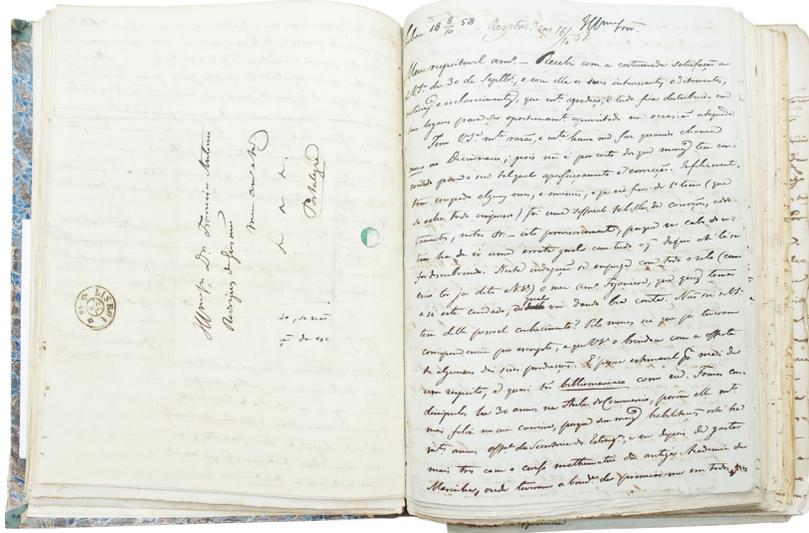 Illmo Sr. Dr. Francisco Antonio
Rodrigues de Gusmão
meu am.
Portalegre
LISBOA
do, se não
de esc
Lisboa 18 8/10 58
Respond. em 16/10 58
Meu respeitavel am.º — Recebi com a costumada satisfação a
de 30 de Septbr, e com ella os seus interessantes additamentos,
e esclarecimentos, que mto agradeço, e tudo fica distribuido em
seus logares para ser opportunamte aproveitado na occasião
Tem V. S.ª mta razão, e mta honra me faz quando chama
nosso ao Diccionario, pois não é por certo do que ninguem tem con-
corrido para o seu tal qual aperfeiçoamento e correcção. Infelizmente
tem escapado alguns erros, e omissões, e já no fim do 1º tomo (que
se acha todo impresso) foi uma soffrivel tabella de correcções, addi-
tamentos, notas &c — isto provisoriamente, porque no cabo de
tem ha de ir uma errata geral com tudo o q daqui até lá se
for descubrindo. Nesta indagação se emprega com todo o zelo (como
creio ter já dito a V. S.ª) o meu amo Figaniere, que quiz tomar
a si este cuidado, do qual vai dando boa conta. Não sei se V. S.ª
tem delle pessoal conhecimento? Pelo menos sei que já tiveram
correspondencia por escripto, e que V. S.ª o brindou com a offerta
de algumas das suas producções. É pessoa estimavel por mais de
um respeito, e quasi tão bibliomaniaco como eu. Fomos con-
discipulos ha 30 annos na Aula do Commercio, porém elle mto
mais feliz na sua carreira, porque sem mais habilitações está ha
mtos annos offal da Secretaria do Estrangros, e eu depois de gastar
mais tres com o curso mathematico da antiga Academia de
Marinha, onde tivemos a bondade de premiar-me em todos